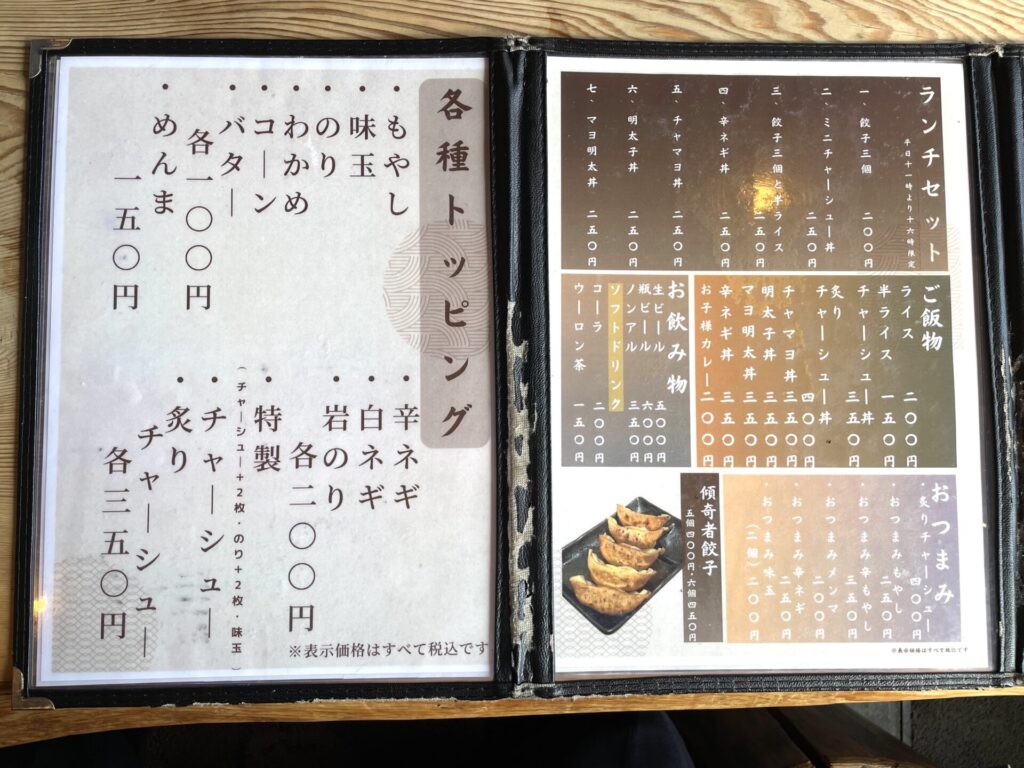 各種トッピング
・もやし
・味玉
・のり
・わかめ
・コーン
・バター
各一〇〇円
・めんま
一五〇円
・辛ネギ
・白ネギ
・岩のり
各二〇〇円
・特製
(チャーシュー+2枚・のり+2枚・味玉)
・チャーシュー
・炙り
チャーシュー
各三五〇円
※表示価格はすべて税込です
ランチセット
平日十一時より十六時限定
一、餃子三個 二〇〇円
二、ミニチャーシュー丼 二五〇円
三、餃子三個と半ライス 二五〇円
四、辛ネギ丼 二五〇円
五、チャマヨ丼 二五〇円
六、明太子丼 二五〇円
七、マヨ明太丼 二五〇円
ご飯物
ライス 二〇〇円
半ライス 一五〇円
チャーシュー丼 三五〇円
炙り
チャーシュー丼 四〇〇円
チャマヨ丼 三五〇円
明太子丼 三五〇円
マヨ明太丼 三五〇円
辛ネギ丼 三五〇円
お子様カレー 二〇〇円
お飲み物
生ビール 五〇〇円
瓶ビール 六〇〇円
ノンアル 三五〇円
ソフトドリンク
コーラ 二〇〇円
ウーロン茶 一五〇円
おつまみ
・炙りチャーシュー 四〇〇円
・おつまみもやし 二五〇円
・おつまみ辛もやし 三五〇円
・おつまみメンマ 二〇〇円
・おつまみ辛ネギ 二五〇円
・おつまみ味玉
(二個) 二〇〇円
傾奇者餃子
五個四〇〇円・六個四五〇円
※表示価格はすべて税込です